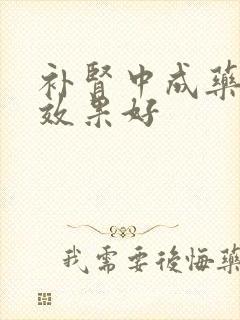 补腎中成藥
效果好
我需要後悔藥